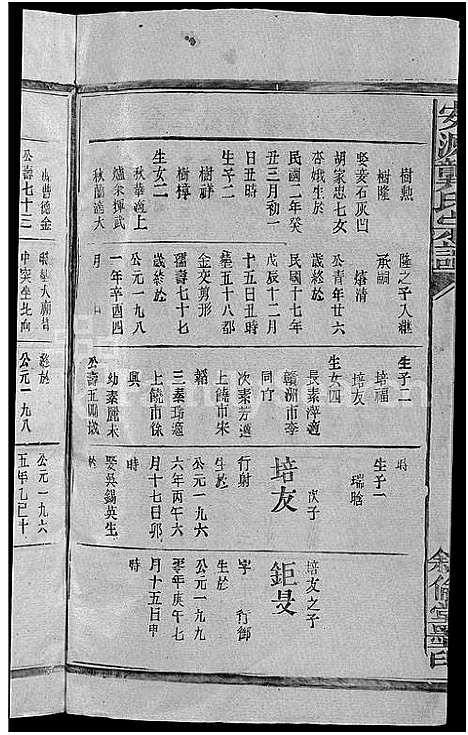 樹勲
樹隆
娶婺石灰凹
胡家忠七女
杏娥生於
民國二年癸
丑三月初一
日丑時
生子二
樹祥
樹椁
生女二
秋華適上
爐朱揮武
秋蘭適大
隆之子入継
承嗣
熺清
公青年廿六
歲終於
民國十七年
戊辰十二月
十五日丑時
塟五十八都
金交剪形
孺壽七十七
歲終於
公元一九八
一年辛酉四
月
生子二
培福
培友
生女四
長素萍適
贛洲市李
同竹
次素芳適
上饒市宋
韜
三素琦適
上饒市徐
興
幼素麗未
公壽五國歲
時
生子一
瑞晗
培友
次子
行射
生於
公元一九六
六年丙午六
月十七日卯
時
娶吳錫英生
於
鉅旻
培友之子
字 行御
生於
公元一九九
零年庚午七
月十五日申
時
敘倫堂墨印
公壽七十三
公元一九八
公元一九六
五年乙巳十